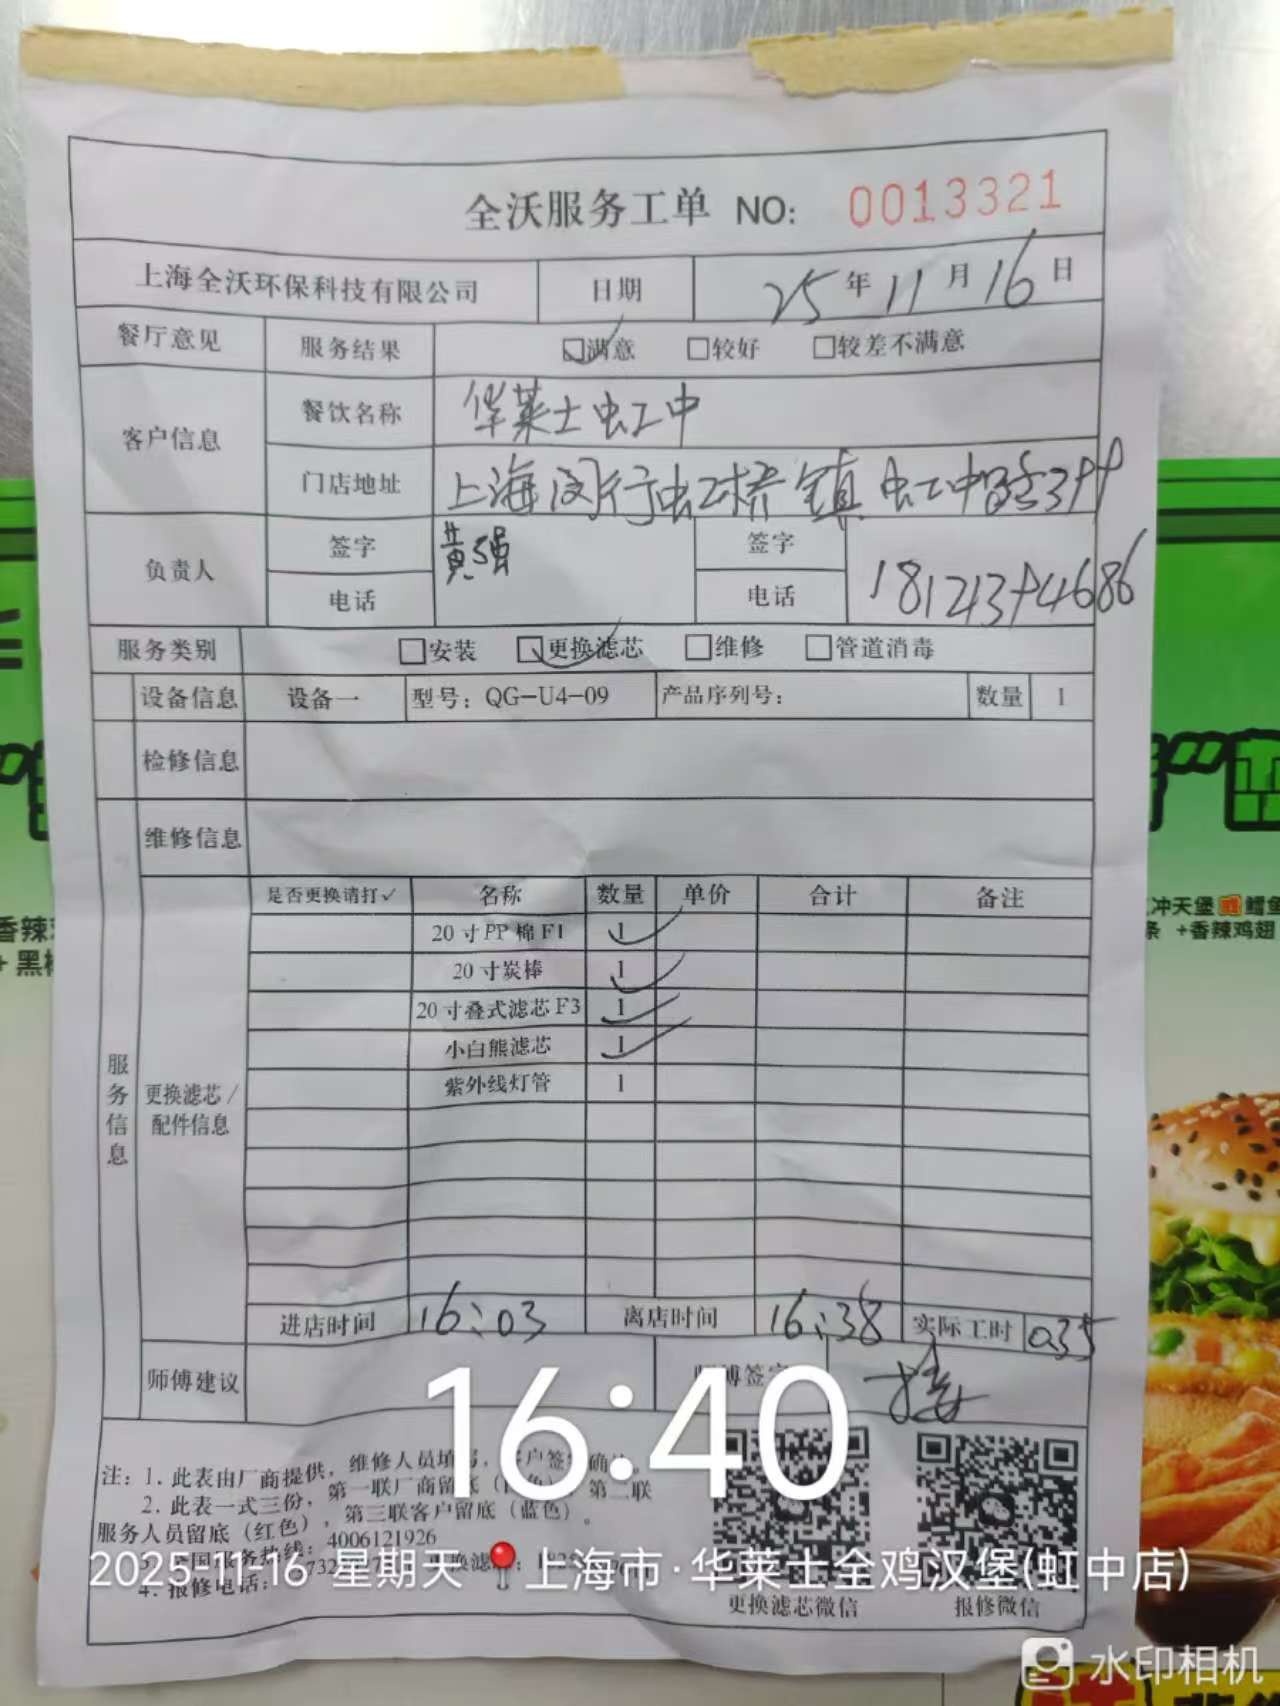 全沃服务工单 NO: 0013321
上海全沃环保科技有限公司 日期 25年11月16日
餐厅意见 服务结果 ☑满意 □较好 □较差不满意
客户信息 餐饮名称 华莱士虹中
门店地址 上海闵行虹桥镇虹中路
负责人 签字 黄强 签字
电话 电话
服务类别 □安装 ☑更换滤芯 □维修 □管道消毒
设备信息 设备一 型号：QG-U4-09 产品序列号： 数量 1
检修信息
维修信息
服务信息
更换滤芯/配件信息
是否更换请打✓ 名称 数量 单价 合计 备注
20寸PP棉F1 1 ✓
20寸炭棒 1 ✓
20寸叠式滤芯F3 1 ✓
小白熊滤芯 1 ✓
紫外线灯管 1
进店时间 16:03 离店时间 16:38 实际工时 035
师傅建议 师傅签字
16:40
注：1. 此表由厂商提供，维修人员填写，客户签
2. 此表一式三份，第一联厂商留底 第二联
服务人员留底（红色），第三联客户留底（蓝色）。
全国服务热线：4006121926
4. 报修电话：
2025.11.16 星期天 上海市·华莱士全鸡汉堡(虹中店)
更换滤芯微信 报修微信
水印相机
冲天堡 鳕鱼
条 +香辣鸡翅
香辣
+ 黑